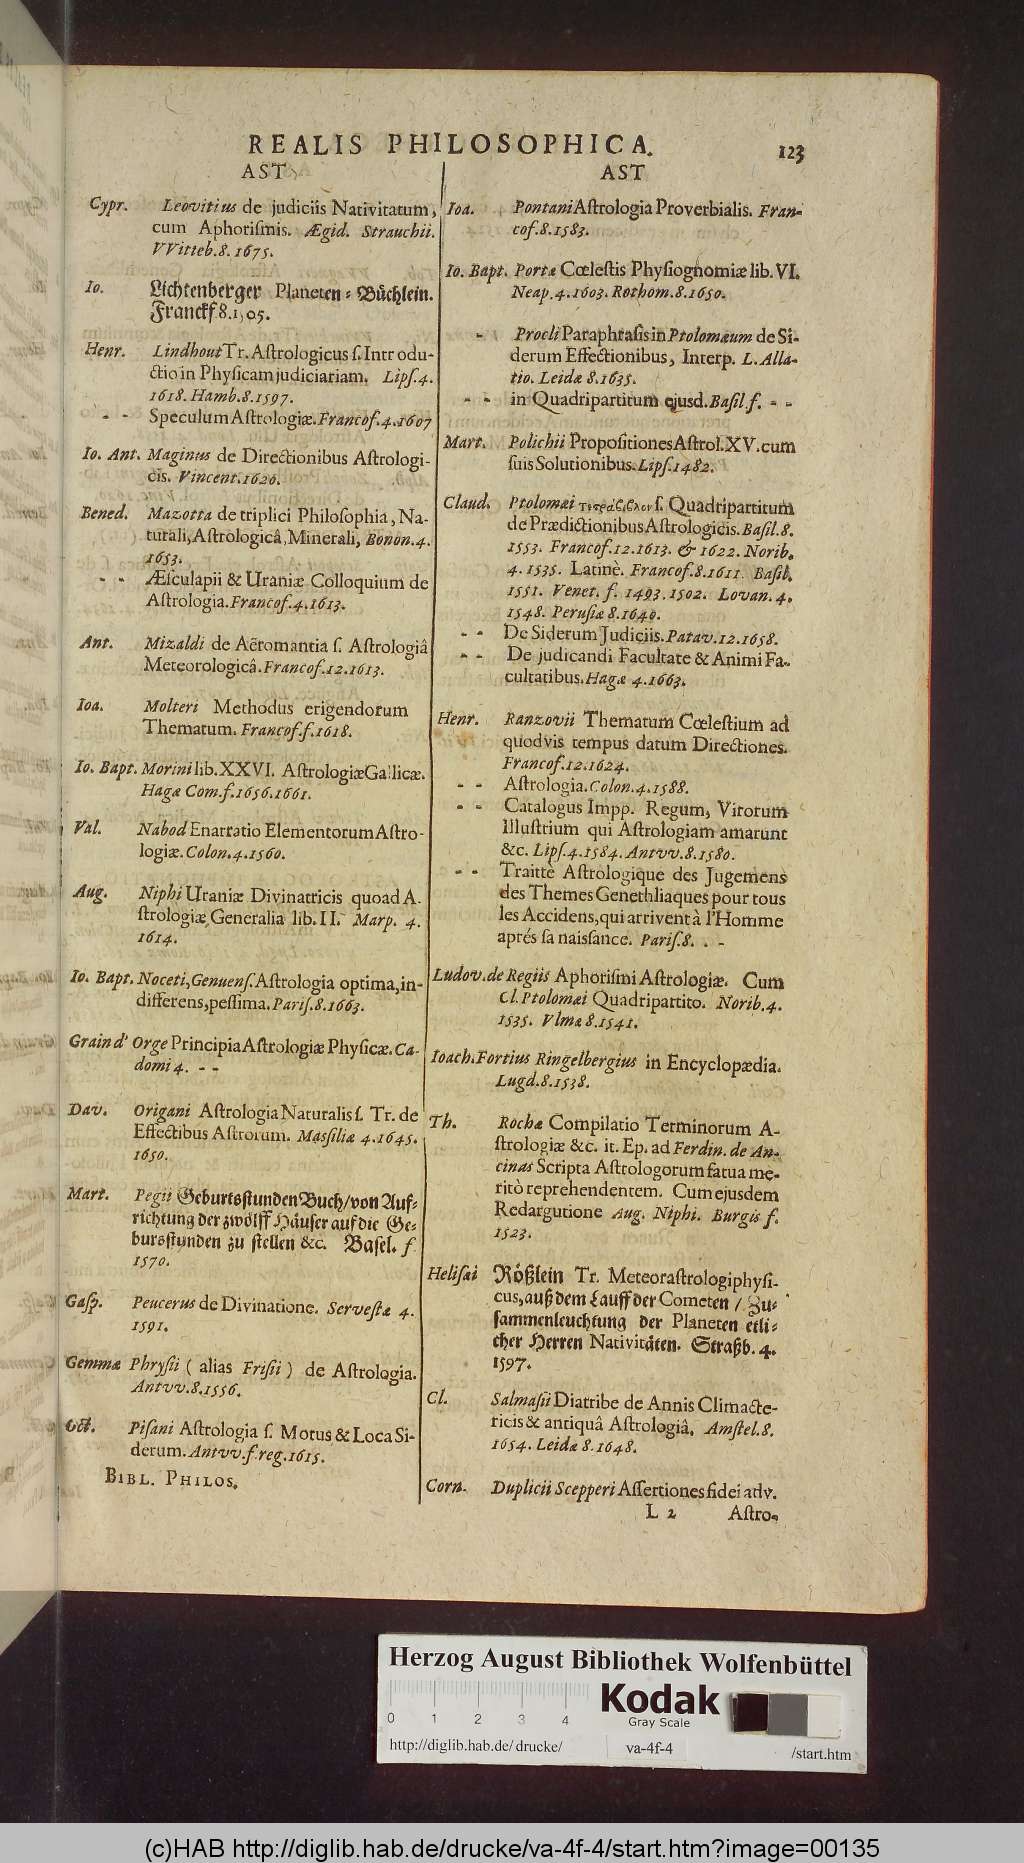 REALIS PHILOSOPHICA.
123
AST
Cypr. Leovitius de judiciis Nativitatum,
cum Aphorismis. Ægid. Strauchii.
VVitteb. 8. 1675.
Io. Lichtenberger Planeten-Büchlein.
Franckf 8. 1505.
Henr. Lindhout Tr. Astrologicus s. Introdu-
ctio in Physicam judiciariam. Lips. 4.
1618. Hamb. 8. 1597.
- - Speculum Astrologiæ. Francof. 4. 1607
Io. Ant. Maginus de Directionibus Astrologi-
cis. Vincent. 1620.
Bened. Mazotta de triplici Philosophia, Na-
turali, Astrologicâ, Minerali, Bonon. 4.
1653.
- - Æsculapii & Uraniæ Colloquium de
Astrologia. Francof. 4. 1613.
Ant. Mizaldi de Aëromantia s. Astrologiâ
Meteorologicâ. Francof. 12. 1613.
Ioa. Molteri Methodus erigendorum
Thematum. Francof. f. 1618.
Io. Bapt. Morini lib. XXVI. Astrologiæ Gallicæ.
Hagæ Com. f. 1656. 1661.
Val. Nabod Enarratio Elementorum Astro-
logiæ. Colon. 4. 1560.
Aug. Niphi Uraniæ Divinatricis quoad A-
strologiæ Generalia lib. II. Marp. 4.
1614.
Io. Bapt. Noceti, Genuens. Astrologia optima, in-
differens, pessima. Paris. 8. 1663.
Grain d' Orge Principia Astrologiæ Physicæ. Ca-
domi 4. - -
Dav. Origani Astrologia Naturalis s. Tr. de
Effectibus Astrorum. Massiliæ 4. 1645.
1650.
Mart. Pegii Geburtsstunden Buch / von Auf-
richtung der zwölff Häuser auf die Ge-
burtsstunden zu stellen &c. Basel. f
1570.
Gasp. Peucerus de Divinatione. Servestæ 4.
1591.
Gemmæ Phrysii ( alias Frisii ) de Astrologia.
Antvv. 8. 1556.
Oct. Pisani Astrologia s. Motus & Loca Si-
derum. Antvv. f. reg. 1615.
BIBL. PHILOS.
AST
Ioa. Pontani Astrologia Proverbialis. Fran-
cof. 8. 1583.
Io. Bapt. Portæ Cœlestis Physiognomiæ lib. VI.
Neap. 4. 1603. Rothom. 8. 1650.
- Procli Paraphrasis in Ptolomæum de Si-
derum Effectionibus, Interp. L. Alla-
tio. Leidæ 8. 1635.
- - in Quadripartitum ejusd. Basil f. - -
Mart. Polichii Propositiones Astrol. XV. cum
suis Solutionibus. Lips. 1482.
Claud. Ptolomæi s. Quadripartitum
de Prædictionibus Astrologicis. Basil. 8.
1553. Francof. 12. 1613. & 1622. Norib.
4. 1535. Latinè. Francof. 8. 1611. Basil.
1551. Venet. f. 1493. 1502. Lovan. 4.
1548. Perusiæ 8. 1640.
- - De Siderum Judiciis. Patav. 12. 1658.
- - De judicandi Facultate & Animi Fa-
cultatibus. Hagæ 4. 1663.
Henr. Ranzovii Thematum Cœlestium ad
quodvis tempus datum Directiones.
Francof. 12. 1624.
- - Astrologia. Colon. 4. 1588.
- - Catalogus Impp. Regum, Virorum
Illustrium qui Astrologiam amarunt
&c. Lips. 4. 1584. Antvv. 8. 1580.
- - Traittè Astrologique des Jugemens
des Themes Genethliaques pour tous
les Accidens, qui arrivent à l'Homme
aprés sa naissance. Paris. 8. - -
Ludov. de Regiis Aphorismi Astrologiæ. Cum
Cl. Ptolomæi Quadripartito. Norib. 4.
1535. Vlmæ 8. 1541.
Ioach. Fortius Ringelbergius in Encyclopædia.
Lugd. 8. 1538.
Th. Rochæ Compilatio Terminorum A-
strologiæ &c. it. Ep. ad Ferdin. de An-
cinas Scripta Astrologorum fatua me-
ritò reprehendentem. Cum ejusdem
Redargutione Aug. Niphi. Burgis f.
1523.
Helisæi Rößlein Tr. Meteorastrologiphysi-
cus, auß dem Lauff der Cometen / Zu-
sammenleuchtung der Planeten etli-
cher Herren Nativitäten. Straßb. 4.
1597.
Cl. Salmasii Diatribe de Annis Climacte-
ricis & antiquâ Astrologiâ. Amstel. 8.
1654. Leidæ 8. 1648.
Corn. Duplicii Scepperi Assertiones fidei adv.
L 2 Astro-
Herzog August Bibliothek Wolfenbüttel
0 1 2 3 4
Kodak
Gray Scale
http://diglib.hab.de/drucke/ va-4f-4 /start.htm
(c)HAB http://diglib.hab.de/drucke/va-4f-4/start.htm?image=00135